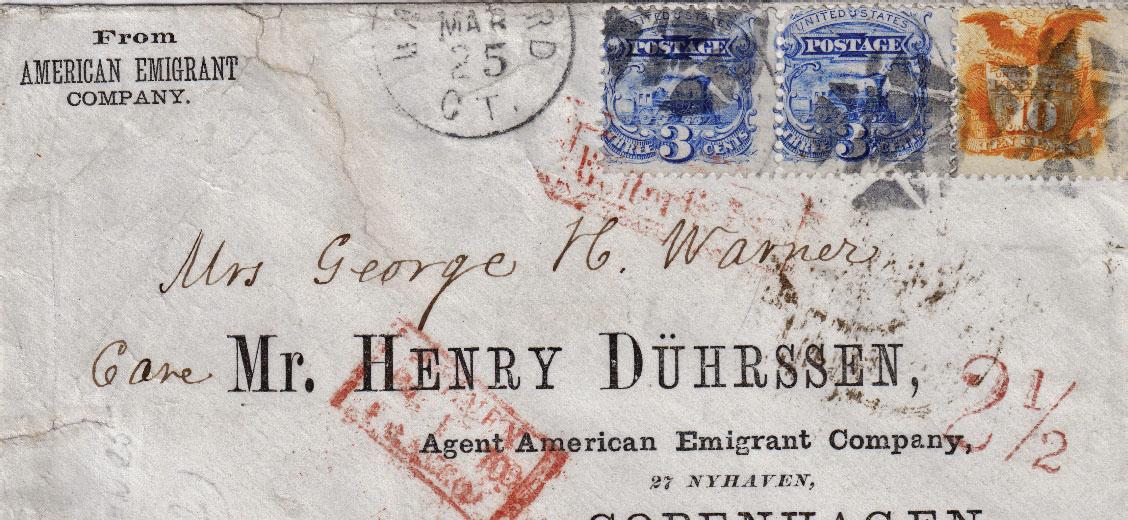 From
AMERICAN EMIGRANT
COMPANY.
MAR
25
CT.
UNITED STATES
POSTAGE
THREE 3 CENTS
UNITED STATES
POSTAGE
THREE 3 CENTS
10
TEN CENTS
Mrs George H. Warner
Care Mr. HENRY DÜHRSSEN,
2 1/2
Agent American Emigrant Company,
27 NYHAVEN,
COPENHAGEN